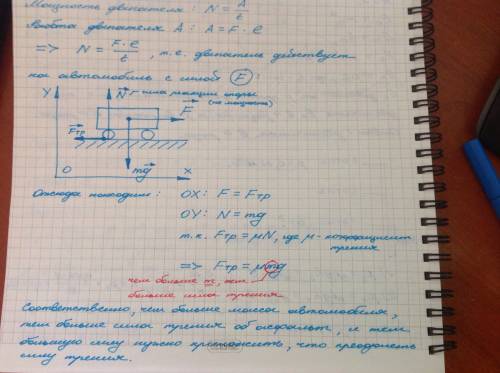 Мощность двигателя: N = A/t
Работа двигателя A: A = F · ℓ
=> N = F · ℓ / t, т.е. двигатель действует
на автомобиль с силой F:
Y
N⃗ - сила реакции опоры
(не мощность)
F⃗
F⃗тр
mg⃗
O X
Отсюда находим: OX: F = Fтр
OY: N = mg
т.к. Fтр = μN, где μ - коэффициент
трения
=> Fтр = μmg
чем больше m, тем
больше сила трения
Соответственно, чем больше масса автомобиля,
тем больше сила трения об асфальт, и тем
большую силу нужно приложить, что преодолеть
силу трения.